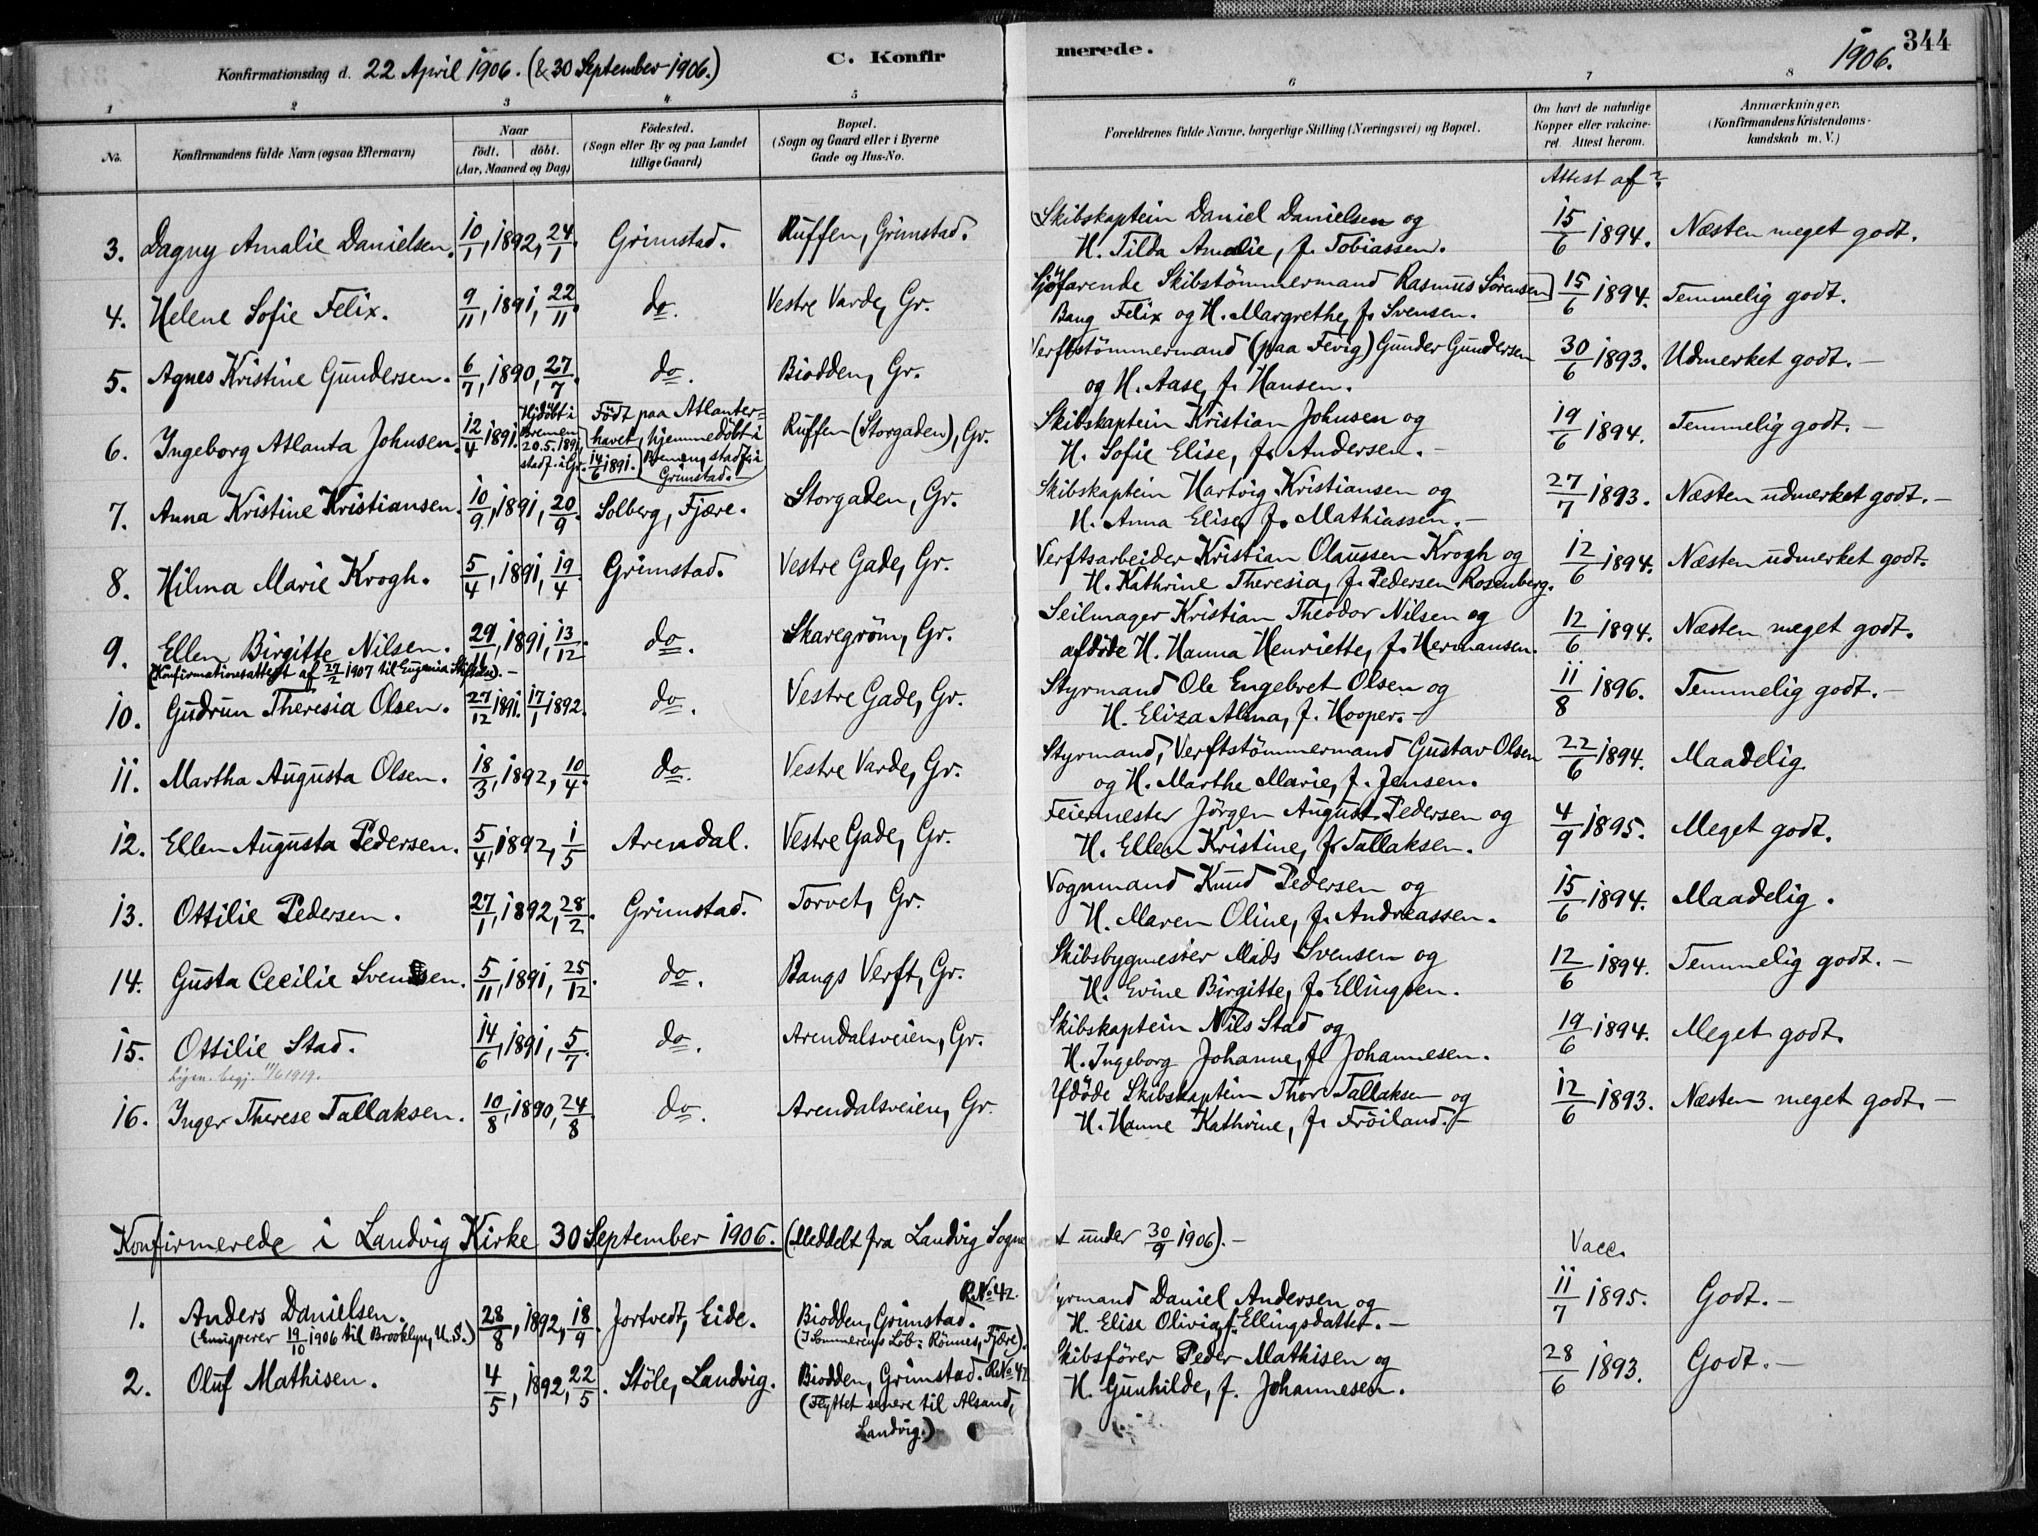 344
1906.
Konfirmationsdag d. 22 April 1906. (& 30 September 1906.)
C. Konfir merede.
1 2 3 4 5 6 7 8
No.
Konfirmandens fulde Navn (ogsaa Efternavn)
Naar
født. døbt.
(Aar, Maaned og Dag)
Fødested.
(Sogn eller By og paa Landet
tillige Gaard)
Bopæl.
(Sogn og Gaard eller i Byerne
Gade og Hus-No.
Forældrenes fulde Navne, borgerlige Stilling (Næringsvei) og Bopæl.
Om havt de naturlige
Kopper eller vakcine-
ret. Attest herom.
Anmærkninger.
(Konfirmandens Kristendoms-
kundskab m. V.)
Attest af
3. Dagny Amalie Danielsen. 10/1, 1892, 24/1. Grimstad. Ruffen, Grimstad. Skibskaptein Daniel Danielsen og 15/6 1894. Næsten meget godt.
H. Tilda Amalie, f. Tobiassen.
4. Helene Sofie Felix. 9/11, 1891, 22/11. do. Vestre Varde, Gr. Sjöfarende Skibstömmermand Rasmus Sörensen 15/6 1894. Temmelig godt.
Bang Felix og H. Margrethe, f. Svensen.
5. Agnes Kristine Gundersen. 6/7, 1890, 27/7. do. Biodden, Gr. Verftstömmermand (paa Fevig) Gunder Gundersen 30/6 1893. Udmerket godt. —
og H. Aase, f. Hansen.
6. Ingeborg Atlanta Johnsen. 12/4 1891. Hjdöbt i Bremen 20.5.1891, stadf. i Gr. 14/6 1891. Födt paa Atlanter=
havet, hjemmedöbt i
Bremen, stadf. i
Grimstad.
Ruffen (Storgaden), Gr. Skibskaptein Kristian Johnsen og 19/6 1894. Temmelig godt. —
H. Sofie Elise, f. Andersen. —
7. Anna Kristine Kristiansen. 10/9, 1891, 20/9. Solberg, Fjære. Storgaden, Gr. Skibskaptein Hartvig Kristiansen og 27/7 1893. Næsten udmerket godt. —
H. Anna Elise, f. Mathiassen. —
8. Hilma Marie Krogh. 5/4, 1891, 19/4. Grimstad. Vestre Gade, Gr. Verftsarbeider Kristian Olaussen Krogh og 12/6 1894. Næsten udmerket godt.
H. Kathrine Theresia, f. Pedersen Rosenberg.
9. Ellen Birgitte Nilsen. 29/11, 1891, 13/12. do. Skaregröm, Gr. Seilmager Kristian Theodor Nilsen og 12/6 1894. Næsten meget godt.
(Konfirmationsattest af 27/2 1907 til Eugenia Stiftelse). — afdöde H. Hanna Henriette, f. Hermansen.
10. Gudrun Theresia Olsen. 27/12 1891. 17/1 1892. do. Vestre Gade, Gr. Styrmand Ole Engebret Olsen og 11/8 1896. Temmelig godt. —
H. Eliza Alma, f. Hooper. —
11. Martha Augusta Olsen. 18/3, 1892, 10/4. do. Vestre Varde, Gr. Styrmand, Verftstömmermand Gustav Olsen 22/6 1894. Maadelig
og H. Marthe Marie, f. Jensen.
12. Ellen Augusta Pedersen. 5/4, 1892, 1/5 Arendal. Vestre Gade, Gr. Feiermester Jörgen August Pedersen og 4/9 1895. Meget godt.
H. Ellen Kristine, f. Tallaksen.
13. Ottilie Pedersen. 27/1, 1892, 28/2. Grimstad. Torvet, Gr. Vognmand Knud Pedersen og 15/6 1894. Maadelig.
H. Maren Oline, f. Andreassen.
14. Gusta Cecilie Svensen. 5/11, 1891, 25/12. do. Bangs Verft, Gr. Skibsbygmester Mads Svensen og 12/6 1894. Temmelig godt. —
H. Evine Birgitte, f. Ellingsen.
15. Ottilie Stad. 14/6, 1891, 5/7. do. Arendalsveien, Gr. Skibskaptein Nils Stad og 19/6 1894. Meget godt.
begj. 11/6 1919. H. Ingeborg Johanne, f. Johannesen.
16. Inger Therese Tallaksen. 10/8, 1890, 24/8. do. Arendalsveien, Gr. Afdöde Skibskaptein Thor Tallaksen og 12/6 1893. Næsten meget godt. —
H. Hanne Kathrine, f. Fröiland. —
Konfirmerede i Landvig Kirke 30 September 1906. (Meddelt fra Landvig Sogne t under 30/9 1906). —
Vacc.
1. Anders Danielsen. 28/8, 1892, 18/9. Jortvedt, Eide. R.No 42. Biodden, Grimstad. Styrmand Daniel Andersen og 11/7 1895. Godt. —
(Emigrerer 19/10 1906 til Brooklyn, U.S.) (I Sommerens Löb: Rönnes, Fjære). H. Elise Olivia, f. Ellingsdatter. —
2. Oluf Mathisen. 4/5, 1892, 22/5. Stöle, Landvig. Biodden, Grimstad. R.No 42 Skibsförer Peder Mathisen og 28/6 1893. Godt. —
(Flyttet senere til Alsand, H. Gunhilde, f. Johannesen.
Landvig.)